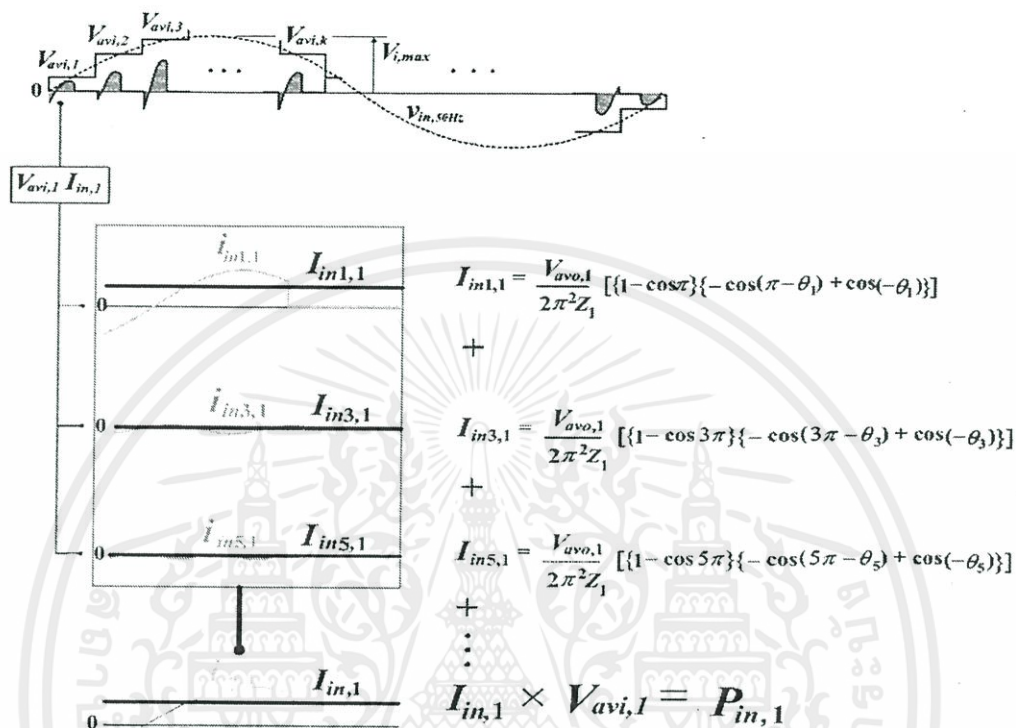 V_{avi,1} V_{avi,2} V_{avi,3} V_{avi,k} V_{i,max}
0
. . .
. . .
v_{in,50Hz}
V_{avi,1} I_{in,1}
i_{in1,1} I_{in1,1}
0
I_{in1,1} = \frac{V_{avo,1}}{2π²Z_1} [{1-cosπ}{-cos(π-θ_1)+cos(-θ_1)}]
+
i_{in3,1} I_{in3,1}
0
I_{in3,1} = \frac{V_{avo,1}}{2π²Z_1} [{1-cos 3π}{-cos(3π-θ_3)+cos(-θ_3)}]
+
i_{in5,1} I_{in5,1}
0
I_{in5,1} = \frac{V_{avo,1}}{2π²Z_1} [{1-cos 5π}{-cos(5π-θ_5)+cos(-θ_5)}]
+
⋮
I_{in,1}
0
I_{in,1} × V_{avi,1} = P_{in,1}